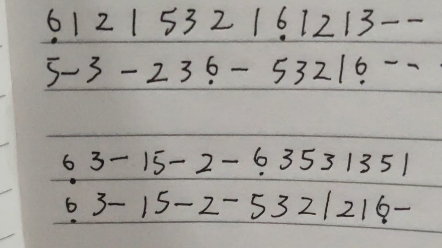 6̣1 2 1 5 3 2 1 6̣ 1 2 1 3 - -
5 - 3 - 2 3 6̣ - 5 3 2 1 6̣ - - -
6̣ 3 - 1 5 - 2 - 6̣ 3 5 3 1 3 5 1
6̣ 3 - 1 5 - 2 - 5 3 2 1 2 1 6̣ -